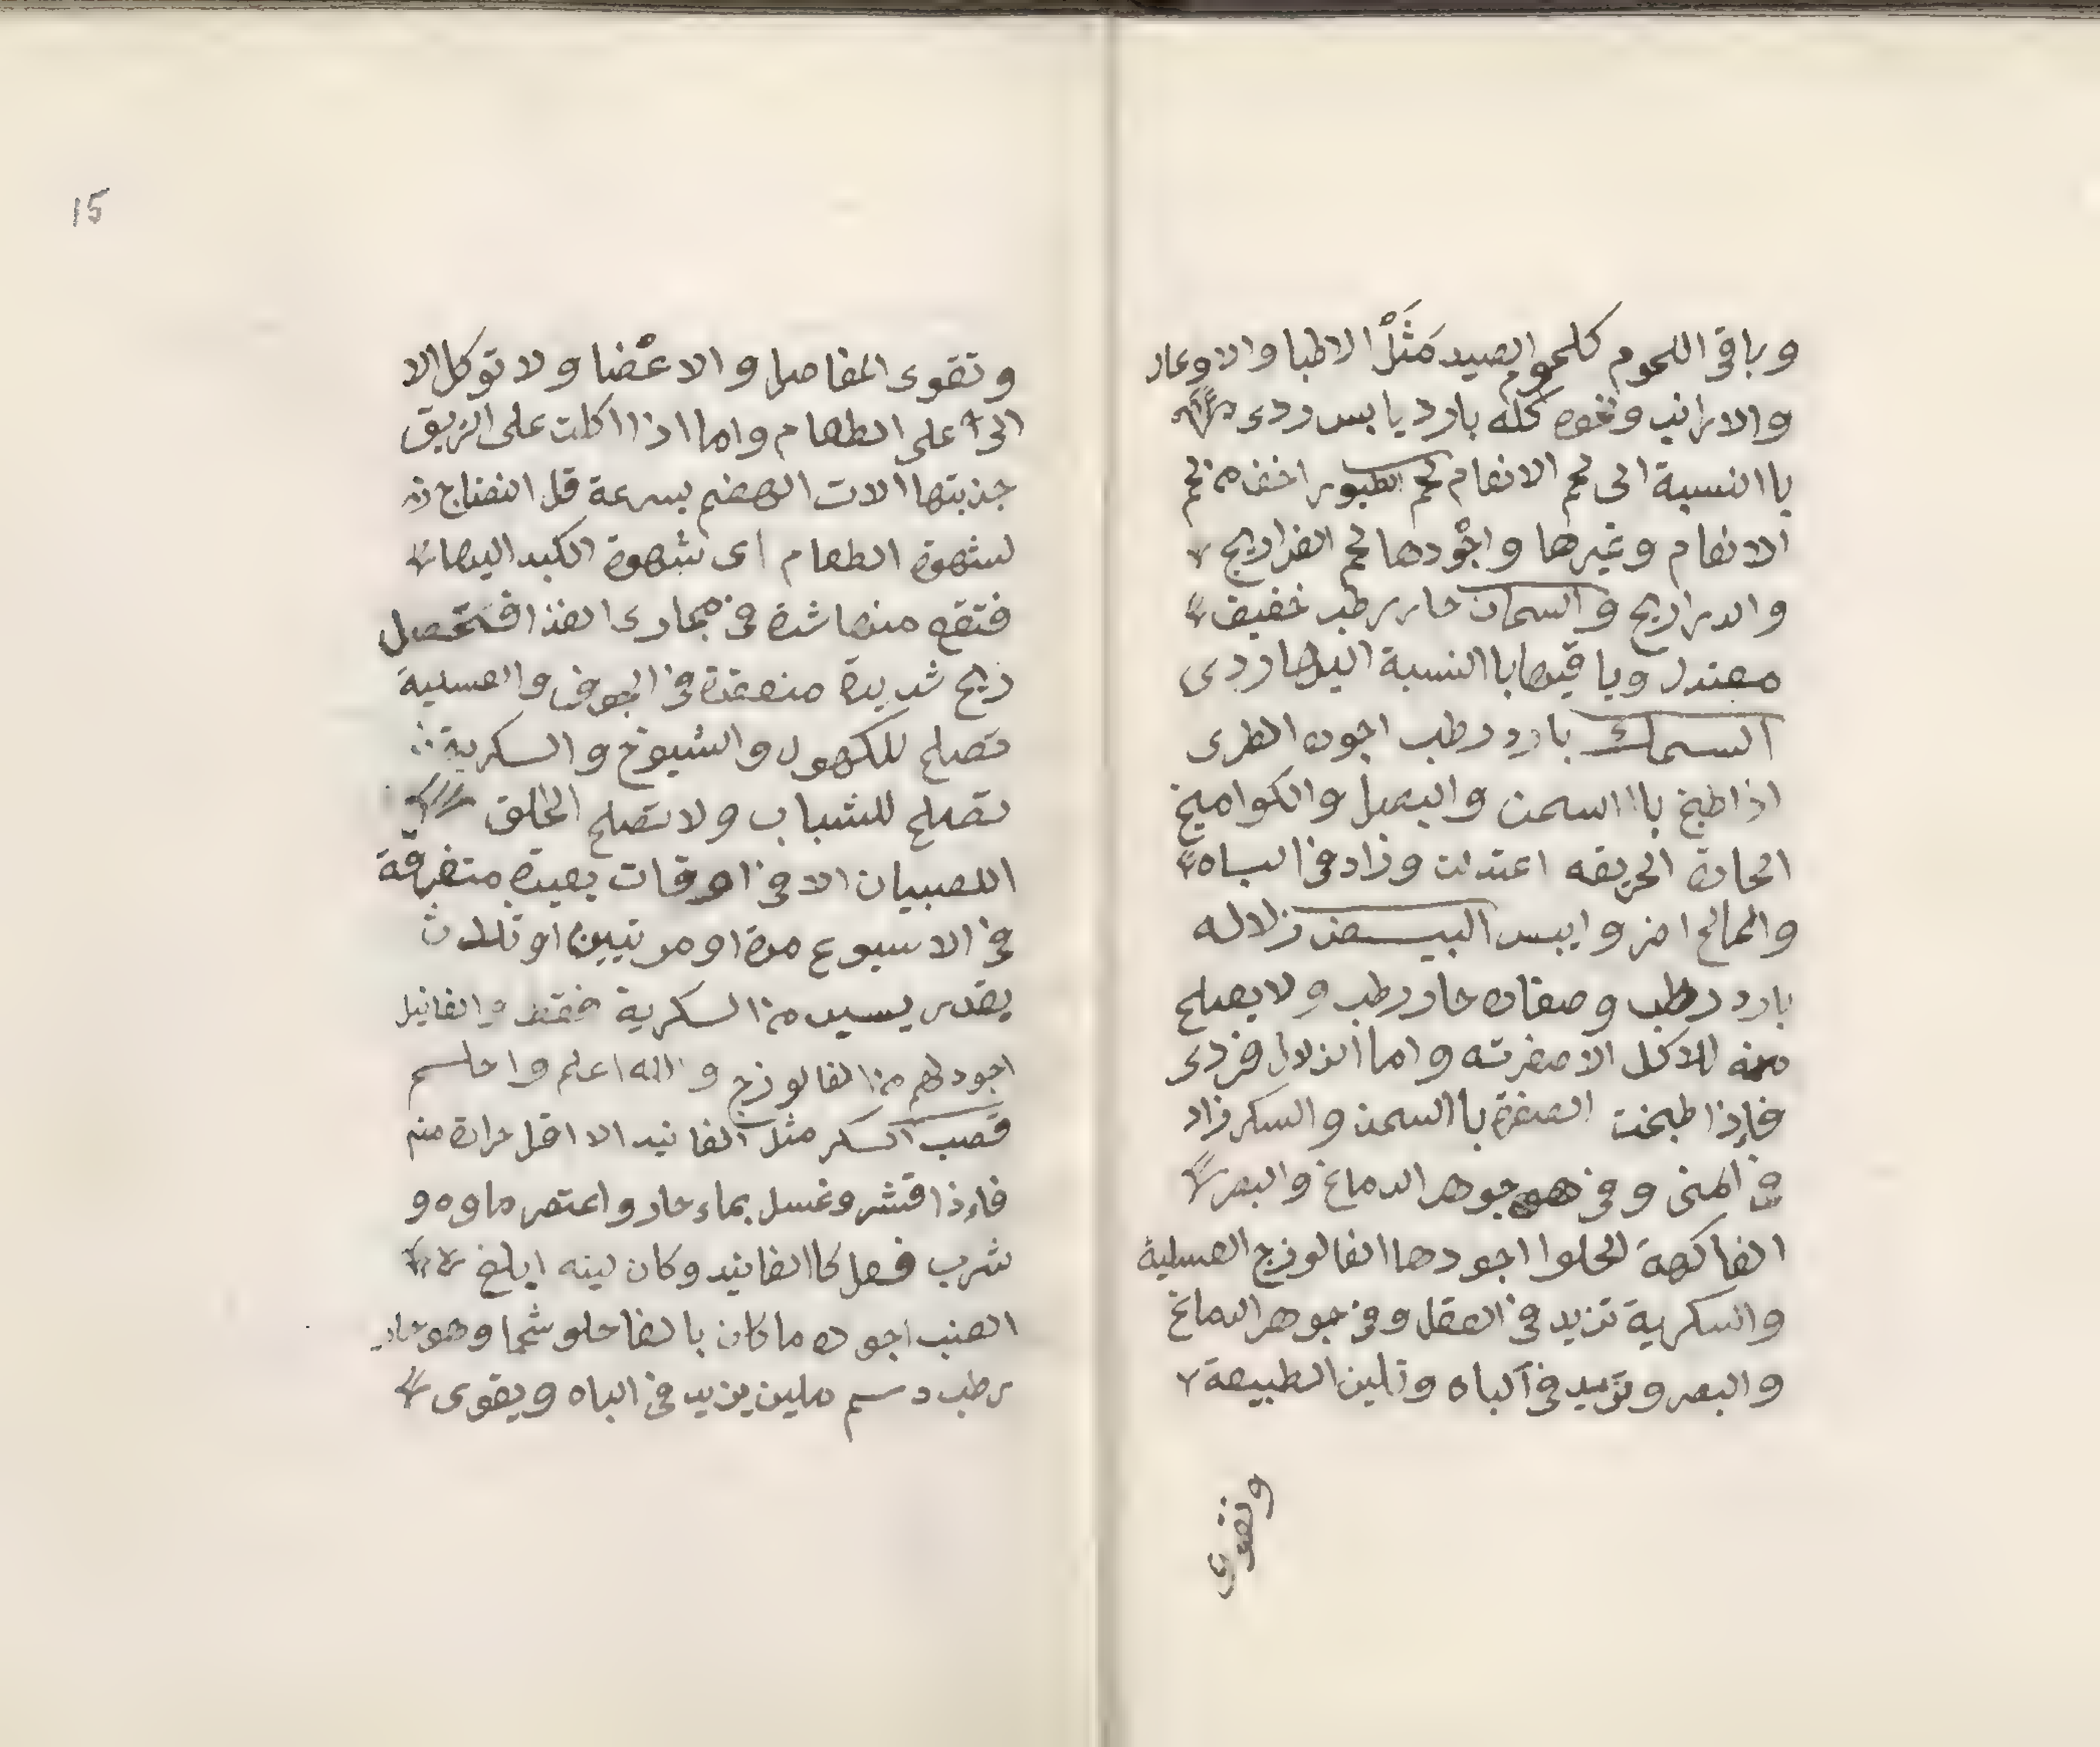 وباقى اللحوم كلحوم الصيد مَثَلْ الاظبا والاوعار
والارانب ونحوه كله بارد يابس ردى
باالنسبة الى لحم الانعام لحم الطيور اخف من لحم
الانعام وغيرها واجْودها لحم الفراريج
والدراريج والسمان حار رطب خفيف
معتدل وباقيها باالنسبة اليها ردى
السمك بارد رطب اجوده الطرى
اذا طبخ باالسمن والبصل والكواميخ
الحارة الحريفه اعتدلت وزاد فى الباه
والمالح امز وايبس البيض زلاله
بارد رطب وصفاره حار رطب ولا يصلح
منه للاكل الا صفرته واما الزلال فردى
فإذا طبخت الصفرة باالسمن والسكر زاد
فى المنى وفى جوهر الدماغ والبصر
الفاكهة الحلوا اجودها الفالوزج العسلية
والسكرية تزيد فى العقل وفى جوهر الدماغ
والبصر وتزيد فى الباه وتلين الطبيعة
وتقوى
15
وتقوى المفاصل والاعْضا ولا توكل الا
على الطعام واما اذا اكلت على الريق
جذبتها الات الهضم بسرعة قل النضاج
لشهوة الطعام اى شهوة الكبد اليها
فتقع منها شدة فى مجارى الغذا فتحصل
ريح شديدة منعقدة فى الجوف والعسلية
تصلح للكهول والشيوخ والسكرية
تصلح للشباب ولا تصلح الحلق
اللصبيان الا فى اوقات بعيدة متفرقة
فى الاسبوع مرة او مرتيين او ثلاث
بقدر يسير من السكرية فقط والفانيد
اجود لهم من الفالوزج والله اعلم واحلم
قصب السكر مثل الفانيد الا اقل حرارة منه
فإذا قشر وغسل بماء حار واعتصر ماوه و
شرب فعل كاالفانيد وكان لينه ابلغ
العنب اجوده ما كان بالغا حلو شحما وهو حار
رطب دسم ملين يزيد فى الباه ويقوى